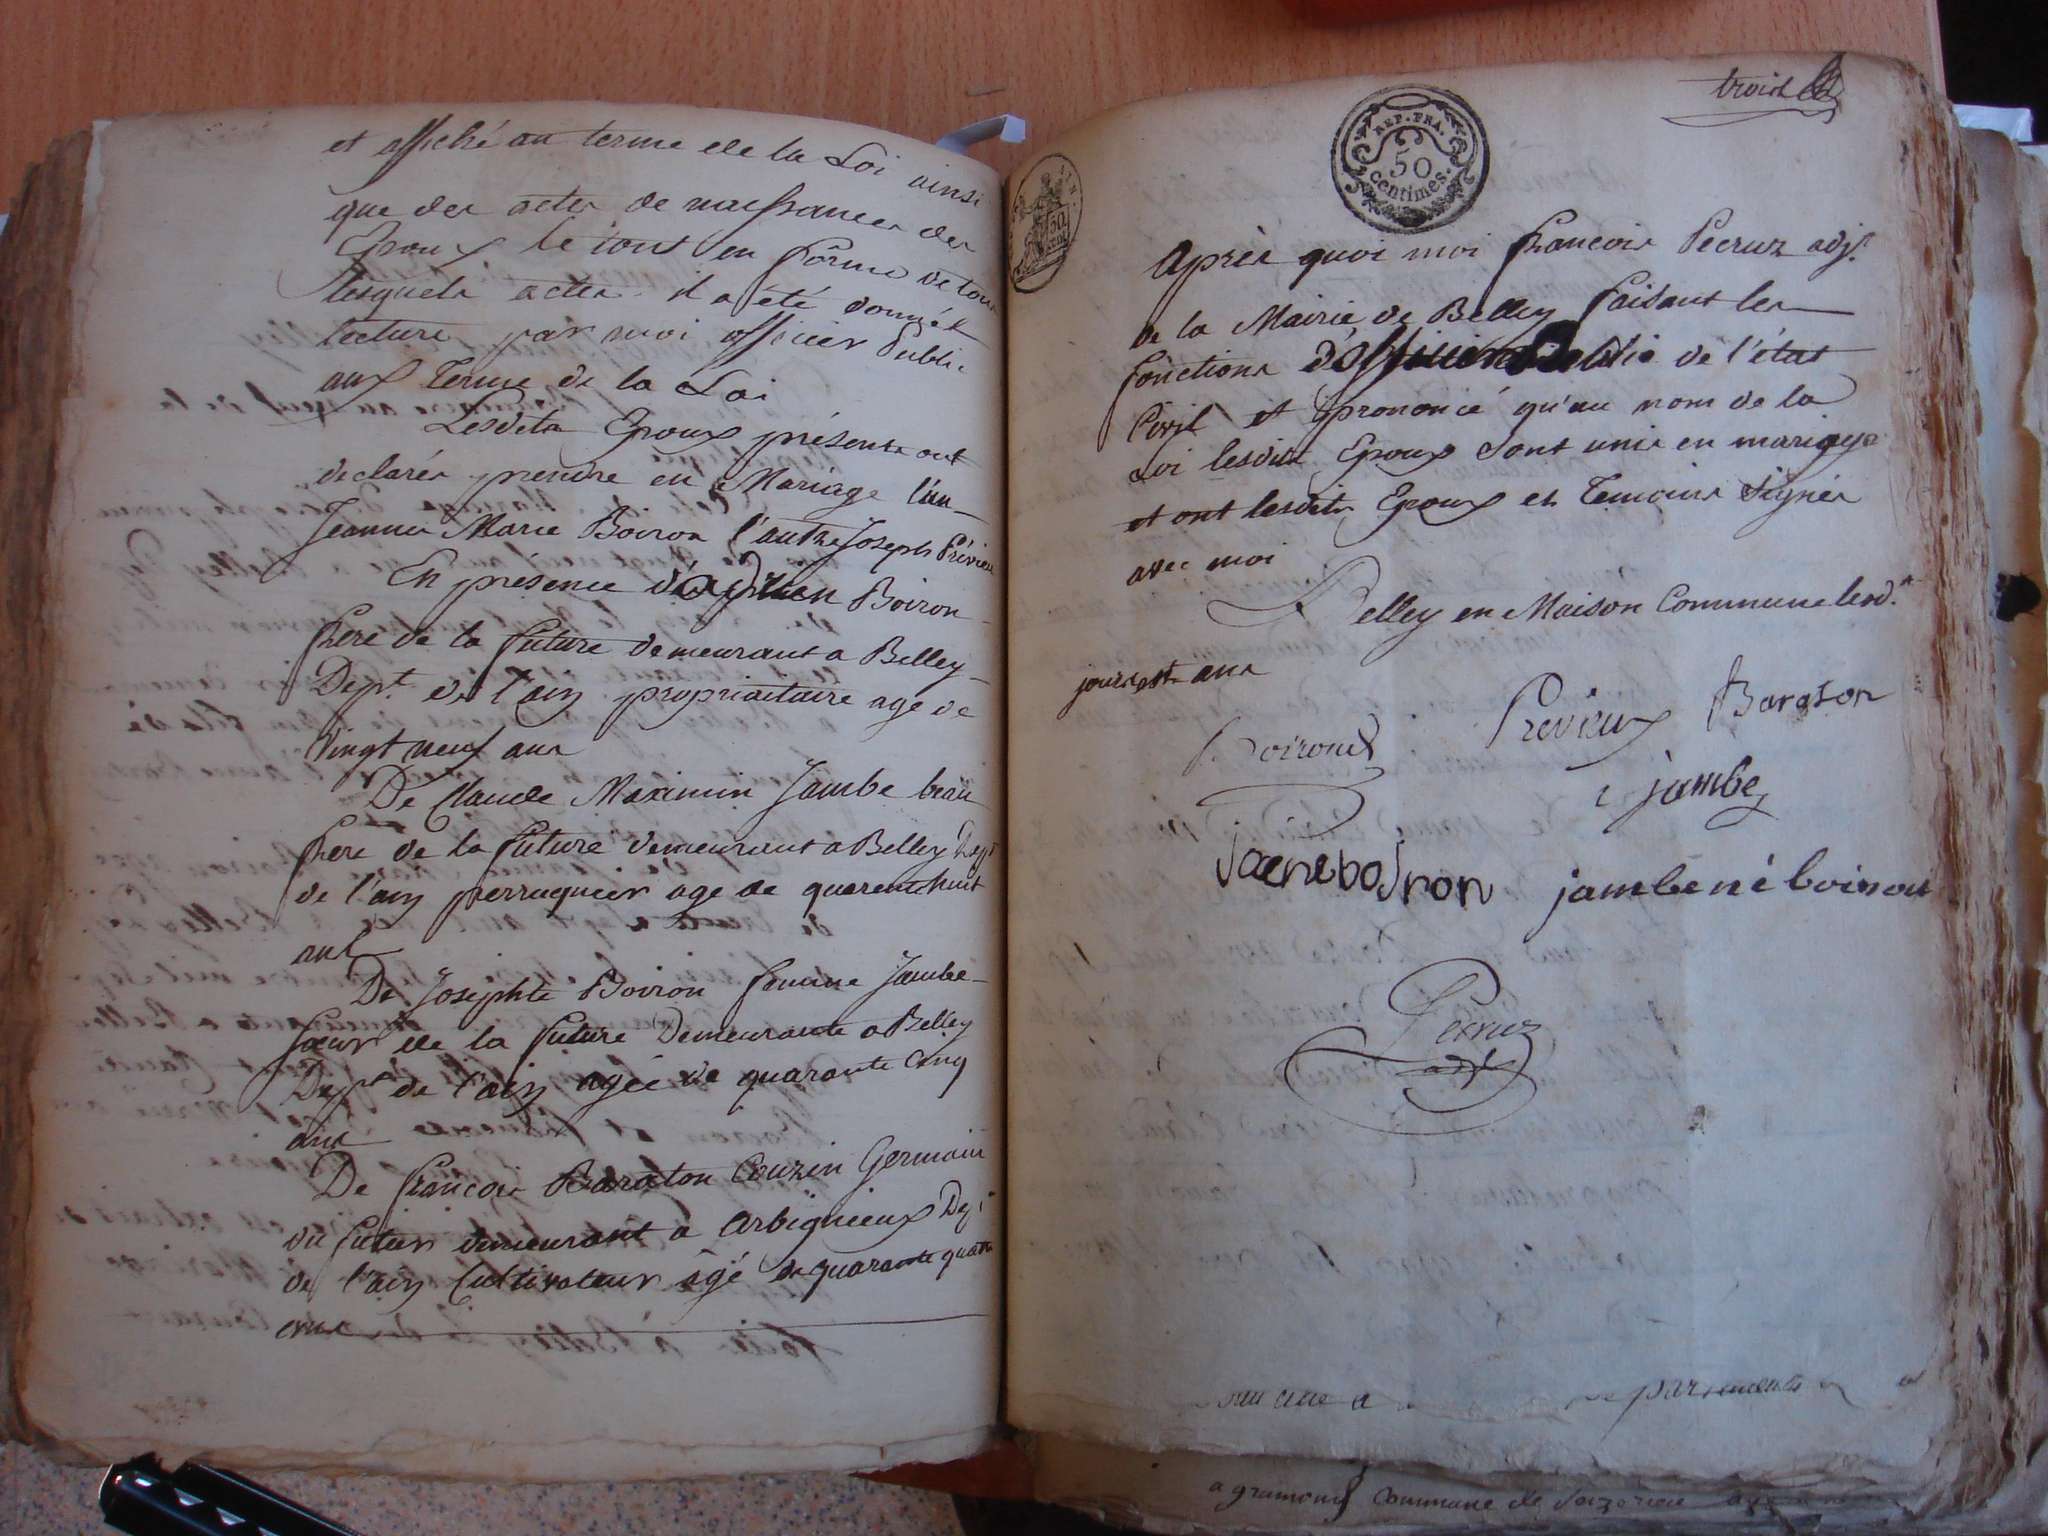 et affiché au terme de la Loi ainsi
que des actes de naissances des
Epoux le tout en forme de tous
lesquels actes il a été donné
lecture par moi officier Public
aux Terme de la Loi
Lesdits Epoux présents ont
declarés prendre en Mariage l'un
Jeanne Marie Boiron l'autre Joseph Prévieux
En présence d'adrien Boiron
frere de la future demeurant a Belley
Dept. de l'ain propriaitaire age de
vingt neuf ans
De Claude Maximin Jambe beau
frere de la future demeurant a Belley Dept
de l'ain perruquier age de quarente huit
ans
De Josephte Boiron femme Jambe
sœur de la future Demeurante a Belley
Dept de l'ain agée de quarante cinq
ans
De françois Baraton Couzin Germain
du futur demeurant a Arbignieux Dept
de l'ain Cultivateur âgé de quarante quatre
ans
trois
REP. FRA.
50
centimes.
Après quoi moi françois Pecruz adjt
de la Mairie de Belley faisant les
fonctions d'officier Public de l'état
Civil et prononcé qu'au nom de la
Loi lesdits Epoux sont unis en mariage
et ont lesdits Epoux et Temoins signés
avec moi
A Belley en Maison Commune lesd.
jours et ans
Boiron Prévieux Baraton
c jambe
jaene boJron jambe né boiron
Pecruz
adjt
a gramond Commune de